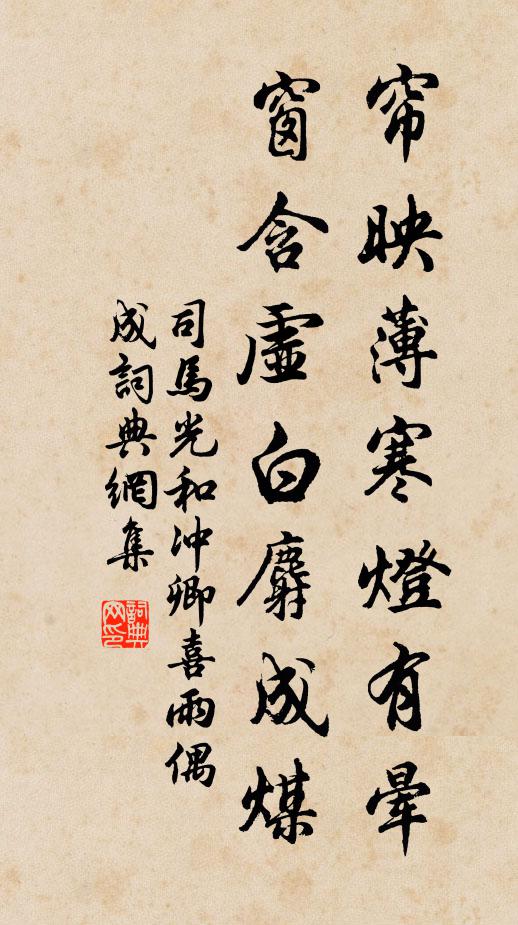 帘映薄寒燈有暈
窗含虛白麝成煤
司馬光和冲卿喜雨偶
成詞典網集
詞典网印